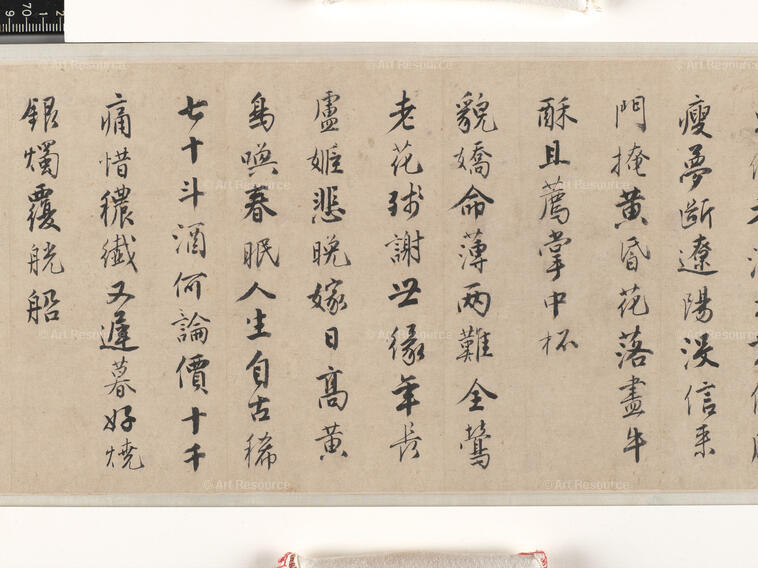 瘦夢斷遼陽沒信來
門掩黃昏花落盡牛
酥且薦掌中杯
貌嬌命薄兩難全鶯
老花殘謝世緣年長
盧姬悲晚嫁日高黃
鳥喚春眠人生自古稀
七十斗酒何論價十千
痛惜穠纖又遲暮好燒
銀燭覆觥船
© Art Resource